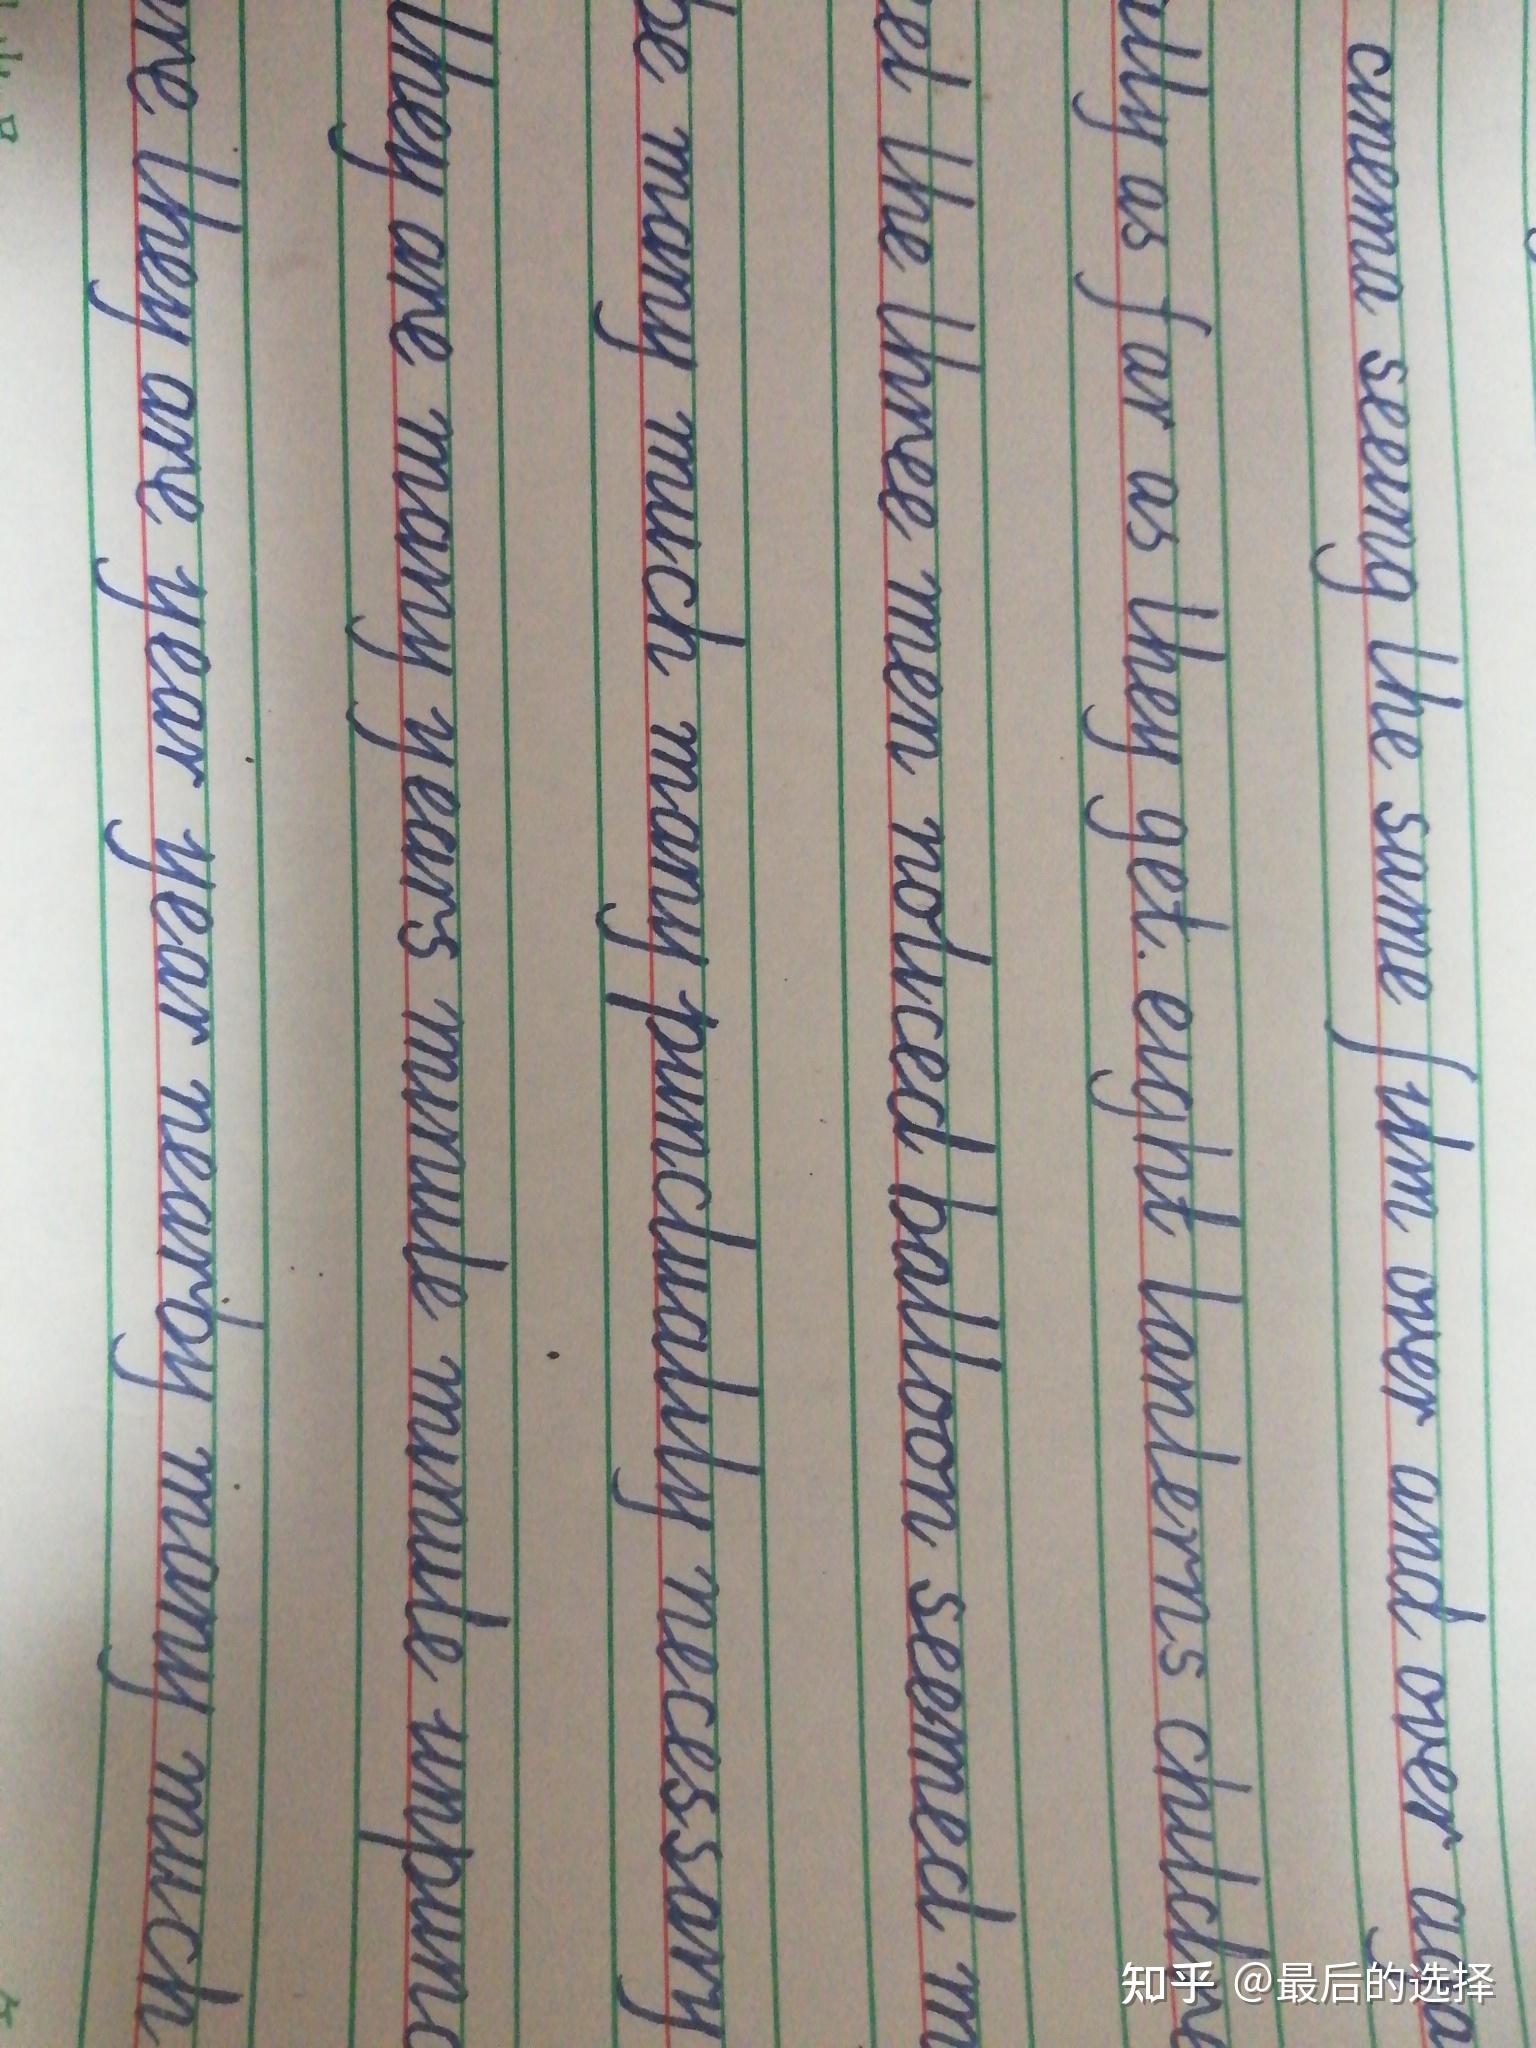 cinema seeing the same film over and over aga
ully as far as they get. eight lanterns childre
et the three men noticed balloon seemed m
be many much many punctually necessary
they are many years minute minute unpunc
are they are year year nearby many much
知乎 @最后的选择